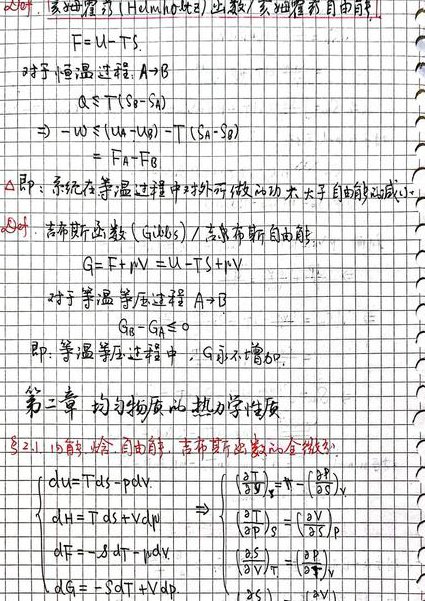 Def. 亥姆霍兹(Helmholtz)函数/亥姆霍兹自由能
F=U-TS.
对于恒温过程: A→B
Q≤T(S_B-S_A)
⇒ -W≤(U_A-U_B)-T(S_A-S_B)
= F_A-F_B
△即: 系统在等温过程中对外所做的功不大于自由能的减小.
Def. 吉布斯函数(Gibbs)/吉布斯自由能.
G=F+pV=U-TS+pV
对于等温等压过程 A→B
G_B-G_A≤0
即: 等温等压过程中, G永不增加.
第二章 均匀物质的热力学性质
§2.1. 内能、焓、自由能、吉布斯函数的全微分
dU=TdS-pdV. (∂T/∂V)_S = -(∂P/∂S)_V
dH=TdS+Vdp ⇒ (∂T/∂P)_S = (∂V/∂S)_P
dF=-SdT-pdV. (∂S/∂V)_T = (∂P/∂T)_V
dG=-SdT+Vdp.